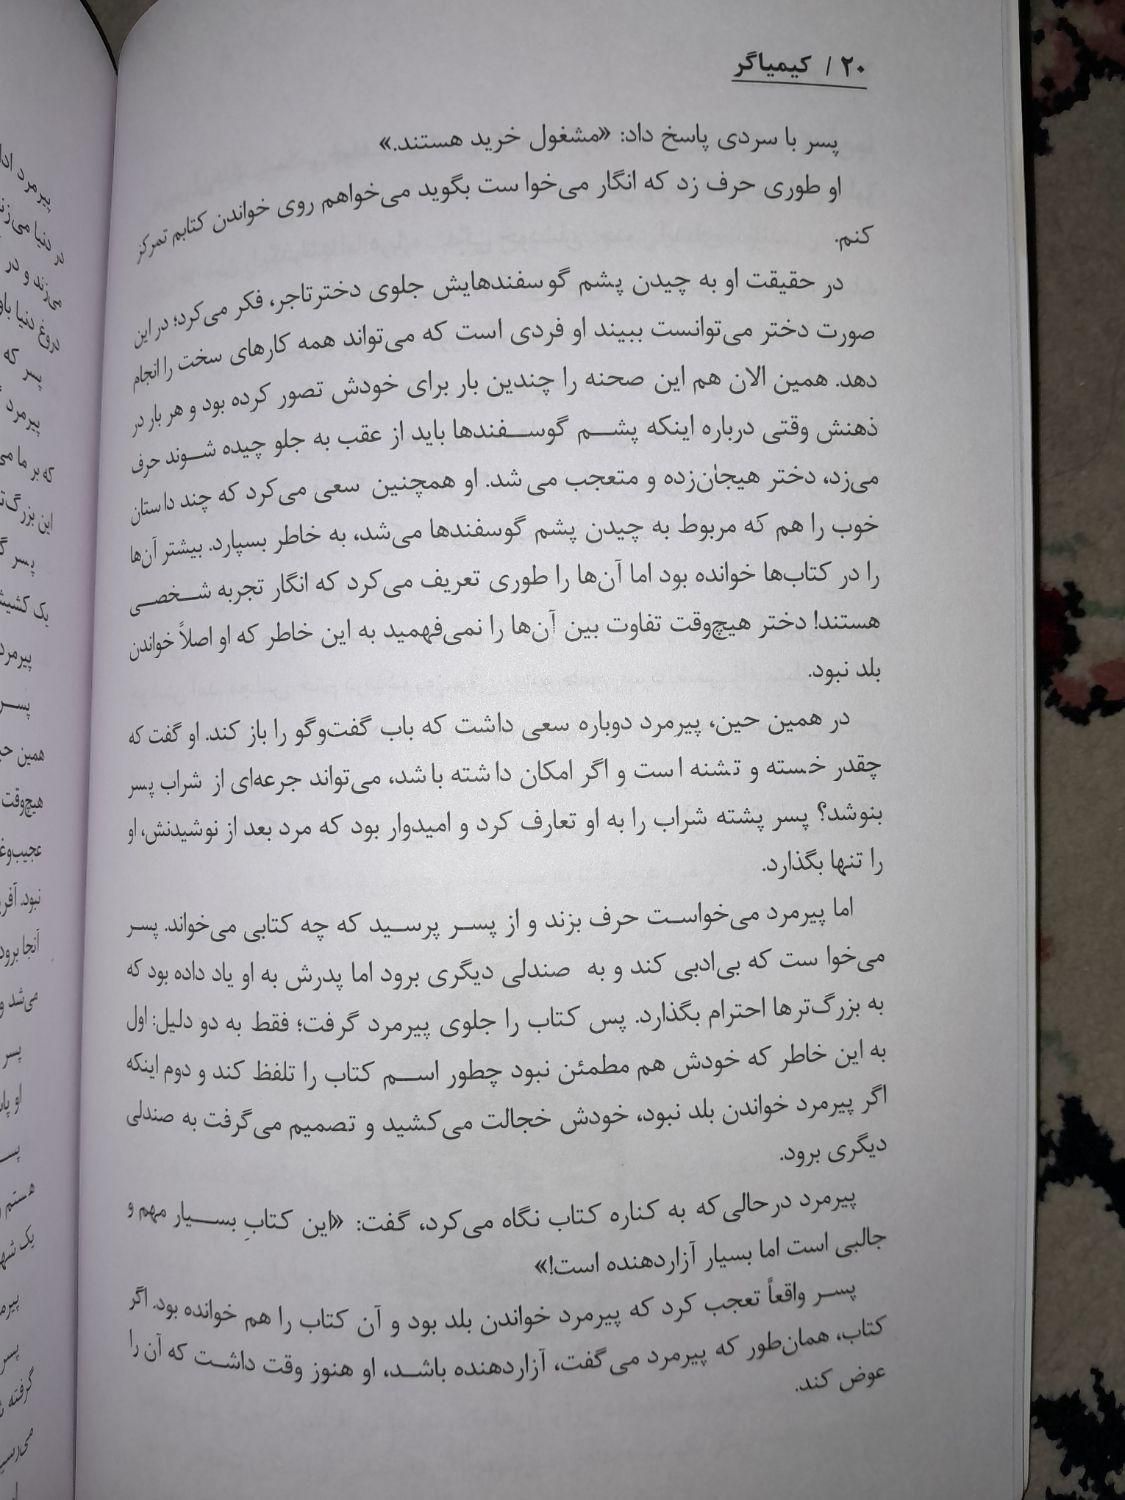 ۲۰ / کیمیاگر
پسر با سردی پاسخ داد: «مشغول خرید هستند.»
او طوری حرف زد که انگار می‌خواست بگوید می‌خواهم روی خواندن کتابم تمرکز
کنم.
در حقیقت او به چیدن پشم گوسفندهایش جلوی دخترتاجر، فکر می‌کرد؛ در این
صورت دختر می‌توانست ببیند او فردی است که می‌تواند همه کارهای سخت را انجام
دهد. همین الان هم این صحنه را چندین بار برای خودش تصور کرده بود و هر بار در
ذهنش وقتی درباره اینکه پشم گوسفندها باید از عقب به جلو چیده شوند حرف
می‌زد، دختر هیجان‌زده و متعجب می‌شد. او همچنین سعی می‌کرد که چند داستان
خوب را هم که مربوط به چیدن پشم گوسفندها می‌شد، به خاطر بسپارد. بیشتر آن‌ها
را در کتاب‌ها خوانده بود اما آن‌ها را طوری تعریف می‌کرد که انگار تجربه شخصی
هستند! دختر هیچ‌وقت تفاوت بین آن‌ها را نمی‌فهمید به این خاطر که او اصلاً خواندن
بلد نبود.
در همین حین، پیرمرد دوباره سعی داشت که باب گفت‌وگو را باز کند. او گفت که
چقدر خسته و تشنه است و اگر امکان داشته باشد، می‌تواند جرعه‌ای از شراب پسر
بنوشد؟ پسر پشته شراب را به او تعارف کرد و امیدوار بود که مرد بعد از نوشیدنش، او
را تنها بگذارد.
اما پیرمرد می‌خواست حرف بزند و از پسر پرسید که چه کتابی می‌خواند. پسر
می‌خواست که بی‌ادبی کند و به صندلی دیگری برود اما پدرش به او یاد داده بود که
به بزرگ‌ترها احترام بگذارد. پس کتاب را جلوی پیرمرد گرفت؛ فقط به دو دلیل: اول
به این خاطر که خودش هم مطمئن نبود چطور اسم کتاب را تلفظ کند و دوم اینکه
اگر پیرمرد خواندن بلد نبود، خودش خجالت می‌کشید و تصمیم می‌گرفت به صندلی
دیگری برود.
پیرمرد درحالی‌که به کناره کتاب نگاه می‌کرد، گفت: «این کتابِ بسیار مهم و
جالبی است اما بسیار آزاردهنده است!»
پسر واقعاً تعجب کرد که پیرمرد خواندن بلد بود و آن کتاب را هم خوانده بود. اگر
کتاب، همان‌طور که پیرمرد می‌گفت، آزاردهنده باشد، او هنوز وقت داشت که آن را
عوض کند.